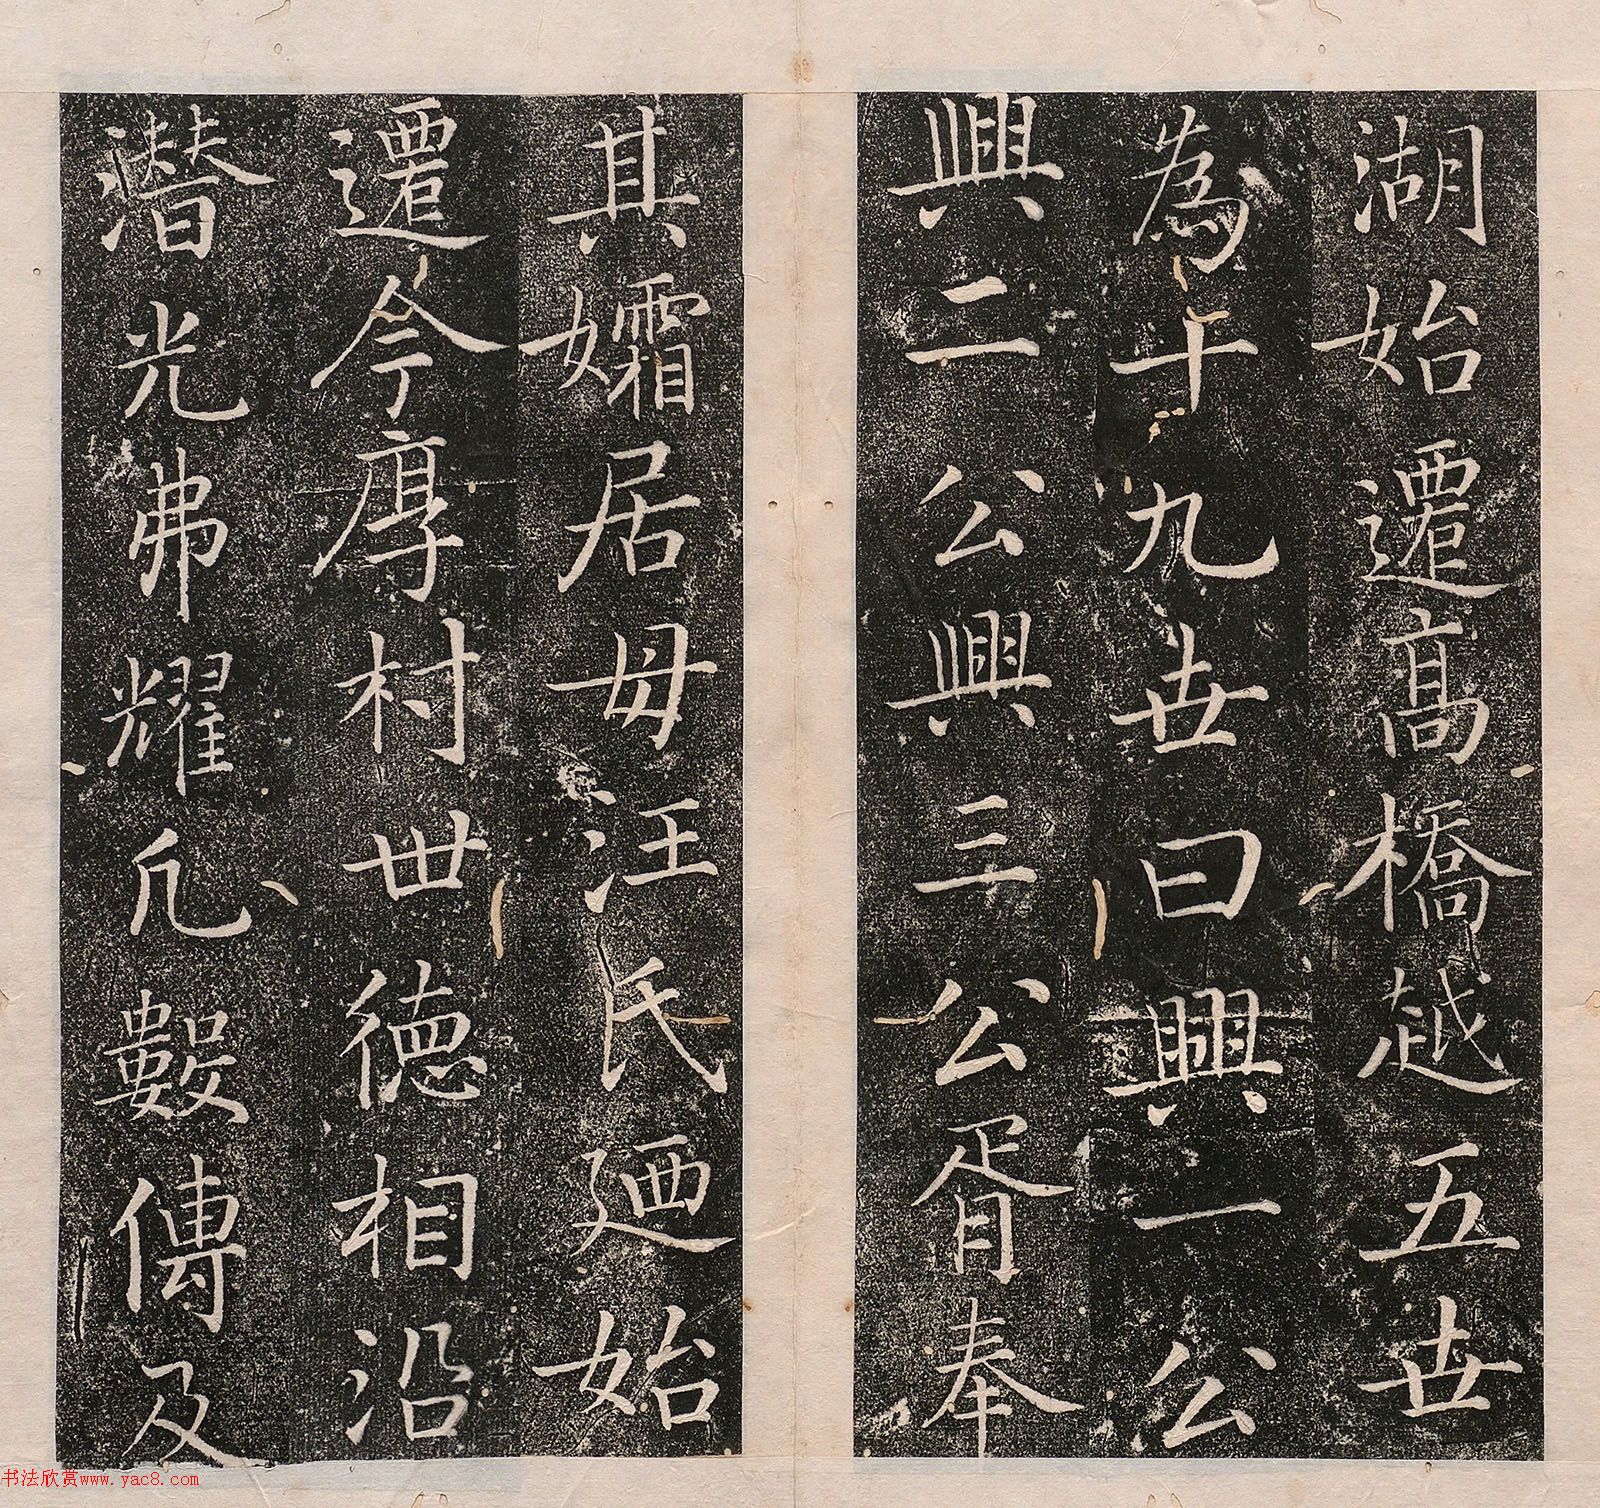 湖始遷髙橋越五世
為十九世曰興一公
興二公興三公胥奉
其孀居母汪氏廼始
遷今厚村世德相沿
潛光弗耀凡數傳及
书法欣赏www.yac8.com